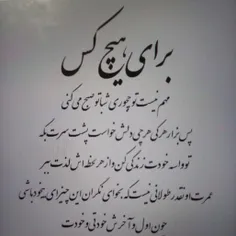 برای هیچ کس
مهم نیست تو چجوری شباتو صبح می کنی
پس بزار هر کی هر چی دلش خواست پشت سرت بگه
تو واسه خودت زندگی کن و از هر لحظه اش لذت ببر
عمرت اونقدر طولانی نیست که بخوای نگران این چیزای بیخود باشی
چون اول و آخرش خودتی و خودت